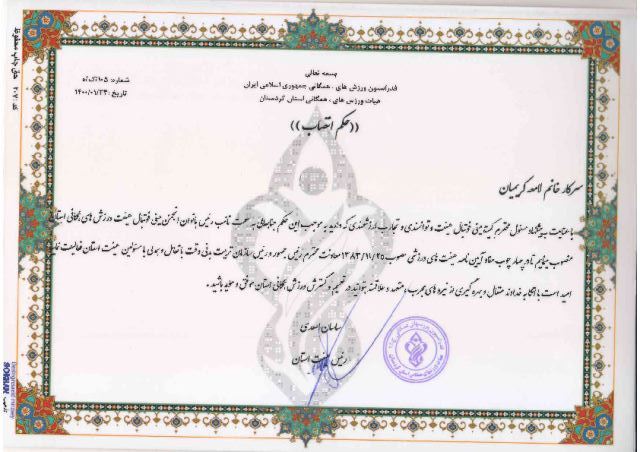 بسمه تعالی
فدراسیون ورزش های همگانی جمهوری اسلامی ایران
هیات ورزش های همگانی استان کردستان
تاریخ: ۱۴۰۰/۰۱/۲۳
((حکم انتصاب))
سرکار خانم لامعه کریمیان
با عنایت به پیشنهاد مسئول محترم کمیته مینی فوتبال هیئت و توانمندی و تجارب ارزشمندی که دارید به موجب این حکم جنابعالی به سمت نائب رئیس بانوان انجمن مینی فوتبال هیئت ورزش های همگانی استان
منصوب می‌نمایم تا در چهار چوب مفاد آیین نامه هیئت های ورزشی مصوب ۱۳۸۳/۱۱/۲۵ معاونت محترم رئیس جمهور و رئیس سازمان تربیت بدنی وقت با تعامل و همدلی با مسئولین هیئت استان فعالیت
امید است با اتکا به خداوند متعال و بهره گیری از نیروهای مجرب، متعهد و علاقمند بتوانید در تعمیم و گسترش ورزش همگانی استان موفق و موید باشید.
ساسان اسعدی
رئیس هیئت استان
حق چاپ محفوظ